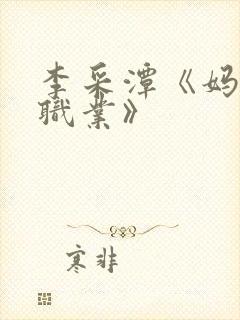 李采潭《妈
職業》
寒非